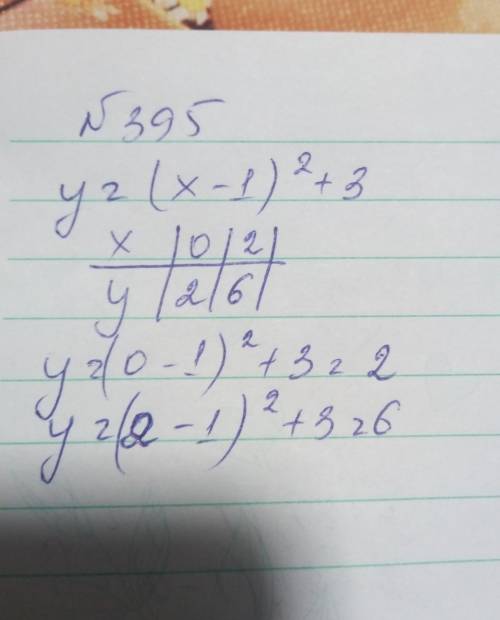 №395
y = (x - 1)² + 3
x | 0 | 2 |
y | 2 | 6 |
y = (0 - 1)² + 3 = 2
y = (2 - 1)² + 3 = 6